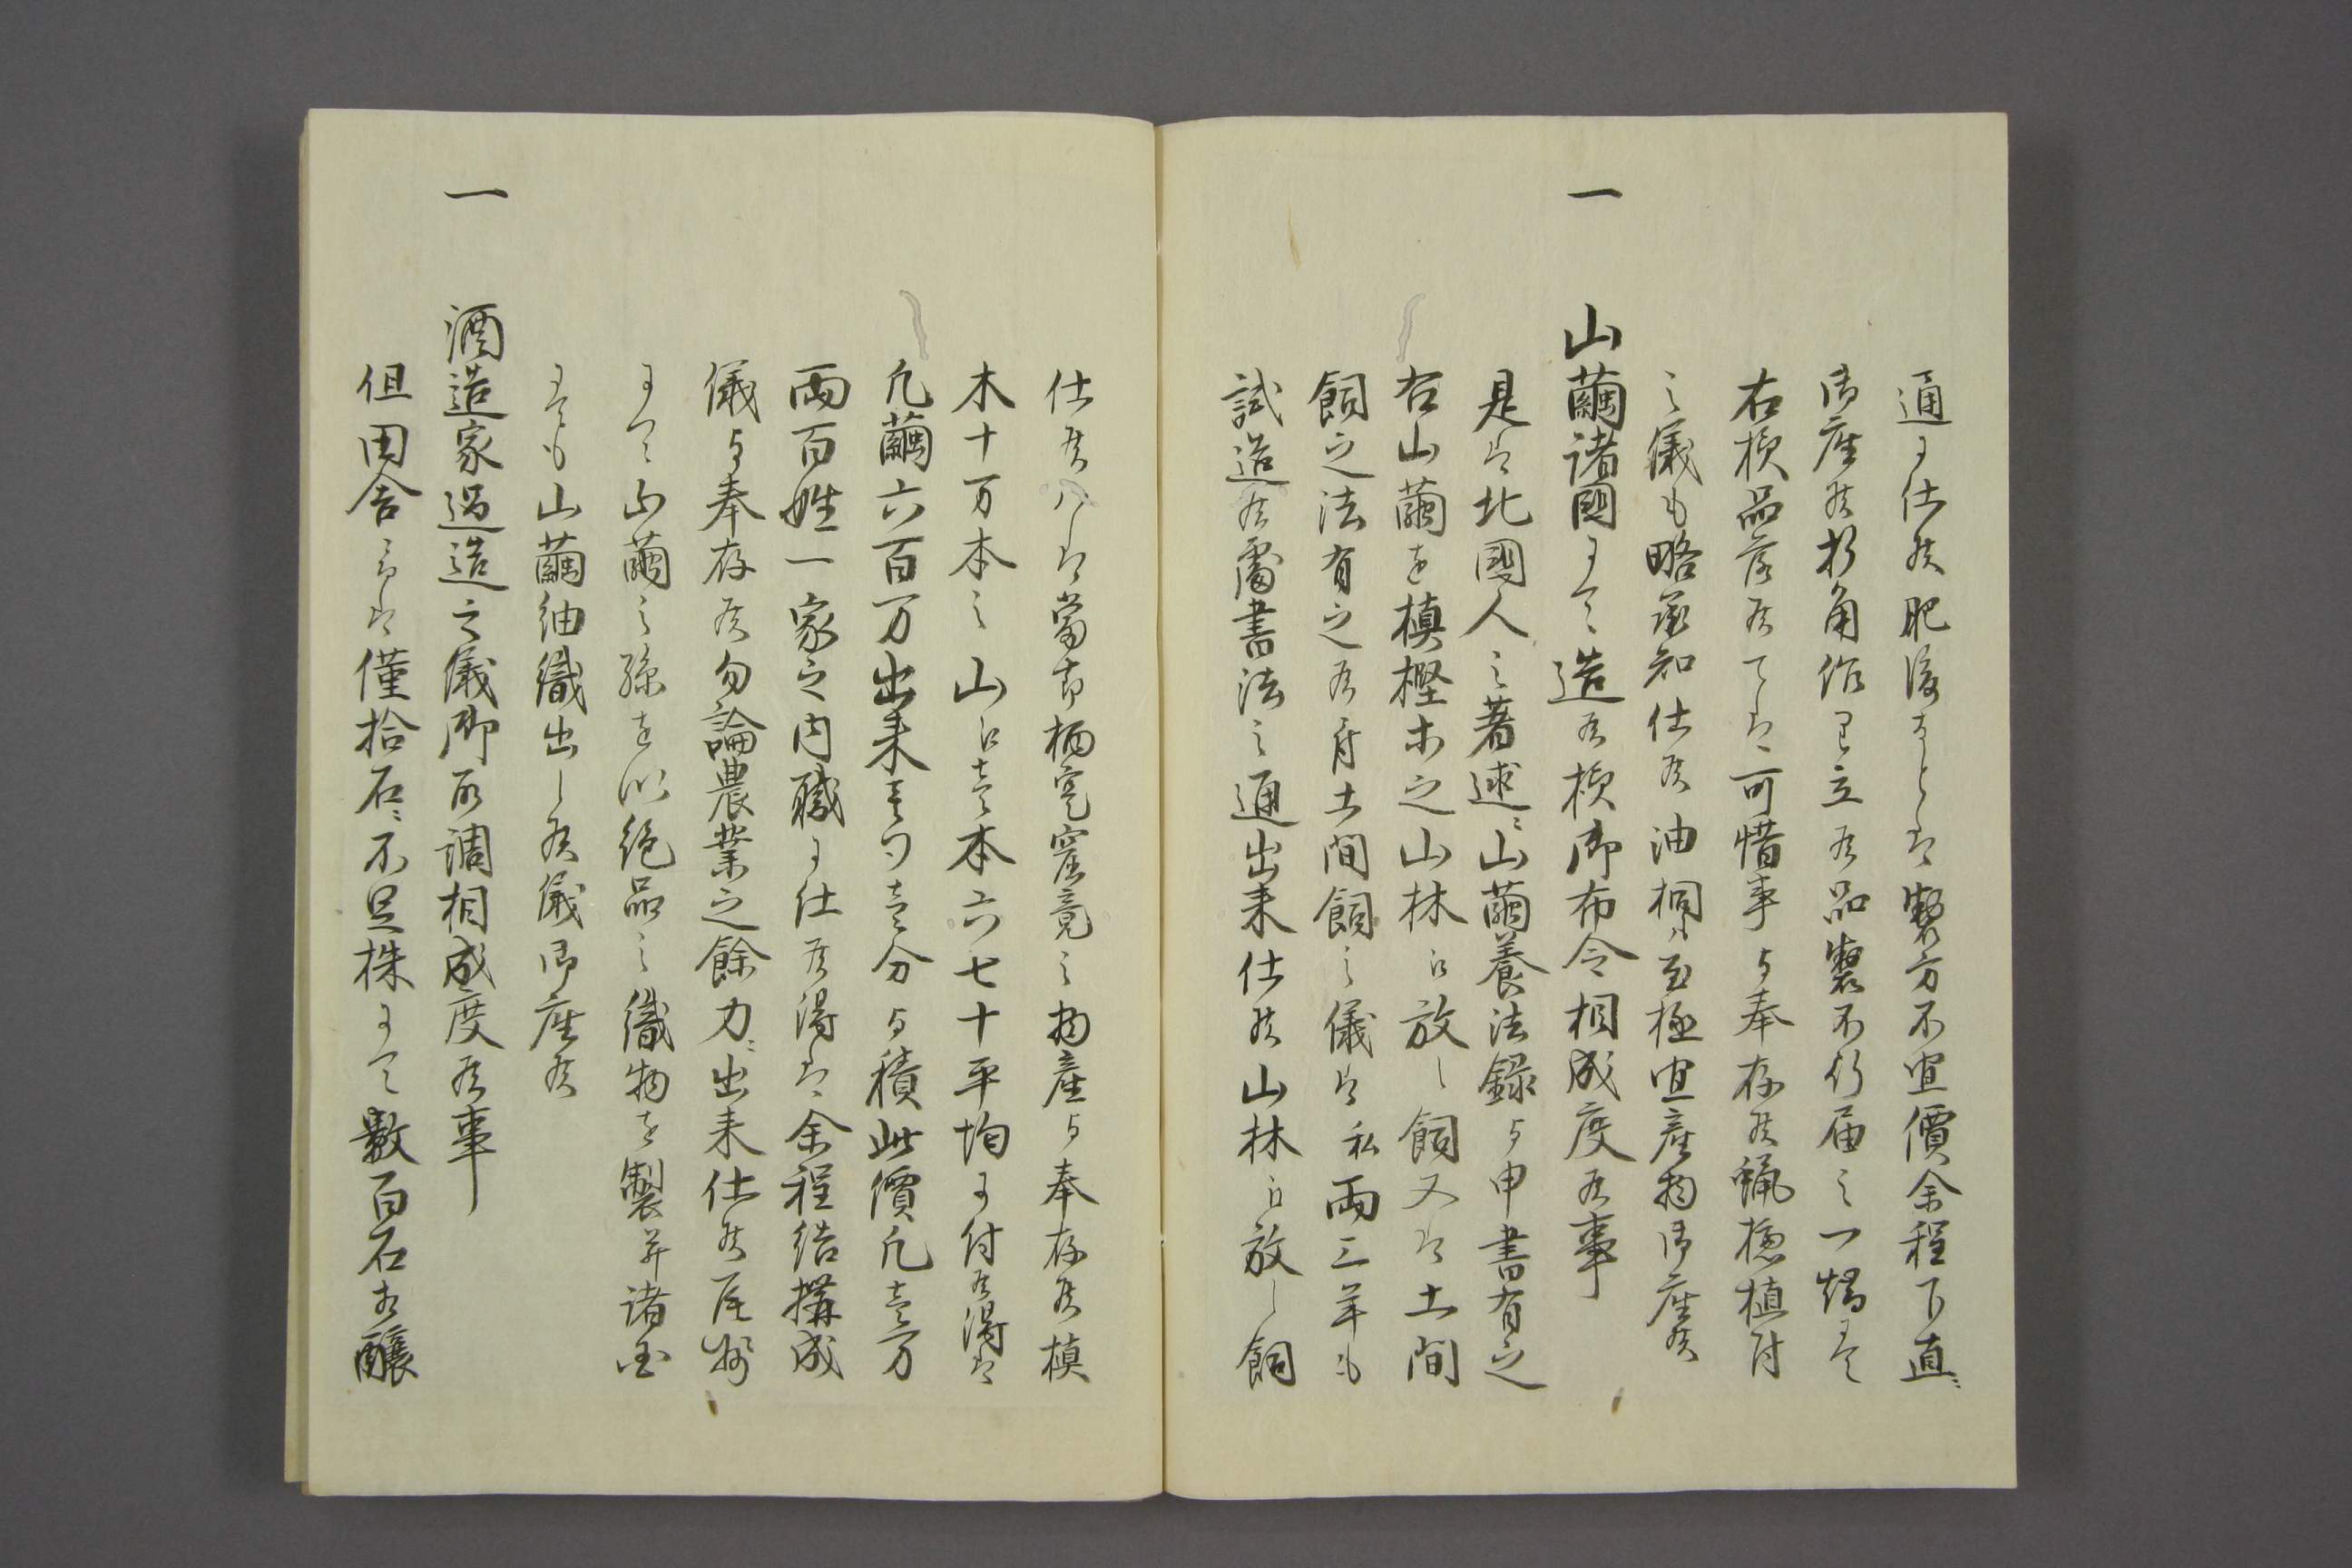 通ニ仕候肥後などハ製方不宜價余程下直ニ
御座候折角作り立候品製不行届之一ツニて
右様品落候てハ可惜事与奉存候蝋櫨植付
之儀も略承知仕候油桐ハ至極宜産物御座候
一 山繭諸國ニて造候様御布令相成度候事
是ハ北國人之著述ニ山繭養法録与申書有之
右山繭を槙樫木之山林江放し飼又ハ土間
飼之法有之候付土間飼之儀ハ私両三年も
試造候處書法之通出来仕候山林江放し飼
仕候ハヽ當節柄究竟之物産与奉存候槙
木十万本之山江壱本六七十平均ニ付候得ハ
凡繭六百万出来壱分与積此價凡壱万
両百姓一家之内職ニ仕候得ハ余程結構成
儀与奉存候勿論農業之餘力ニ出来仕候尾州
ニて山繭之糸を以絶品之織物を製并諸国
ニても山繭紬織出し候儀御座候
一 酒造家過造之儀御取調相成度候事
但田舎ニ而ハ僅拾石ニ不足株ニて數百石も醸